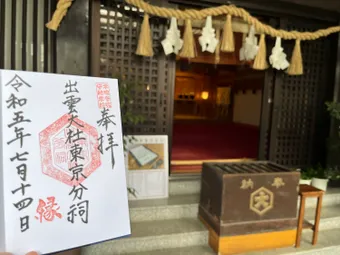 奉拝
出雲大社東京分祠
令和五年七月十四日
縁
奉納